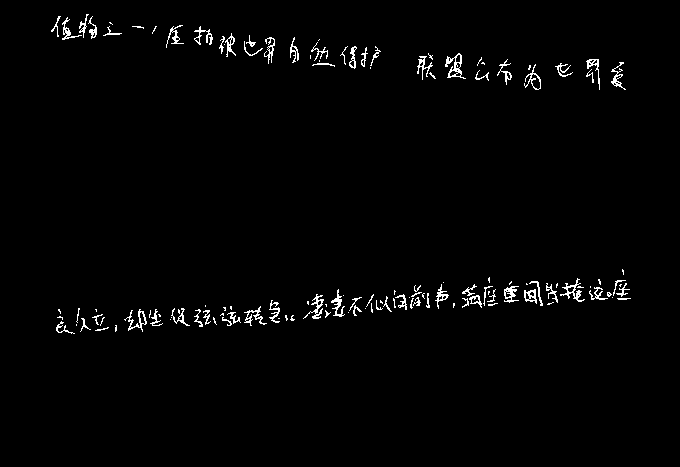 植物之一，压拍被世界自然保护 联盟公布为世界爱
良久立，却坐促弦弦转急。凄凄不似向前声，满座重闻皆掩泣。座